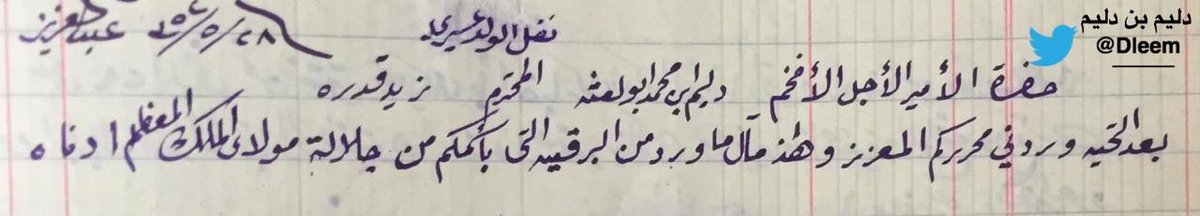 دليم بن دليم
@Dleem
نقل الولد عسيري
حضرة الأمير الأجل الأفخم دليم ابن محمد ابو لعثه المحترم زيد قدره
بعد التحيه وردني محرركم المعزز وهذ مآل ما ورد من البرقيه التى بأسمكم من جلالة مولاى الملك المعظم ادناه